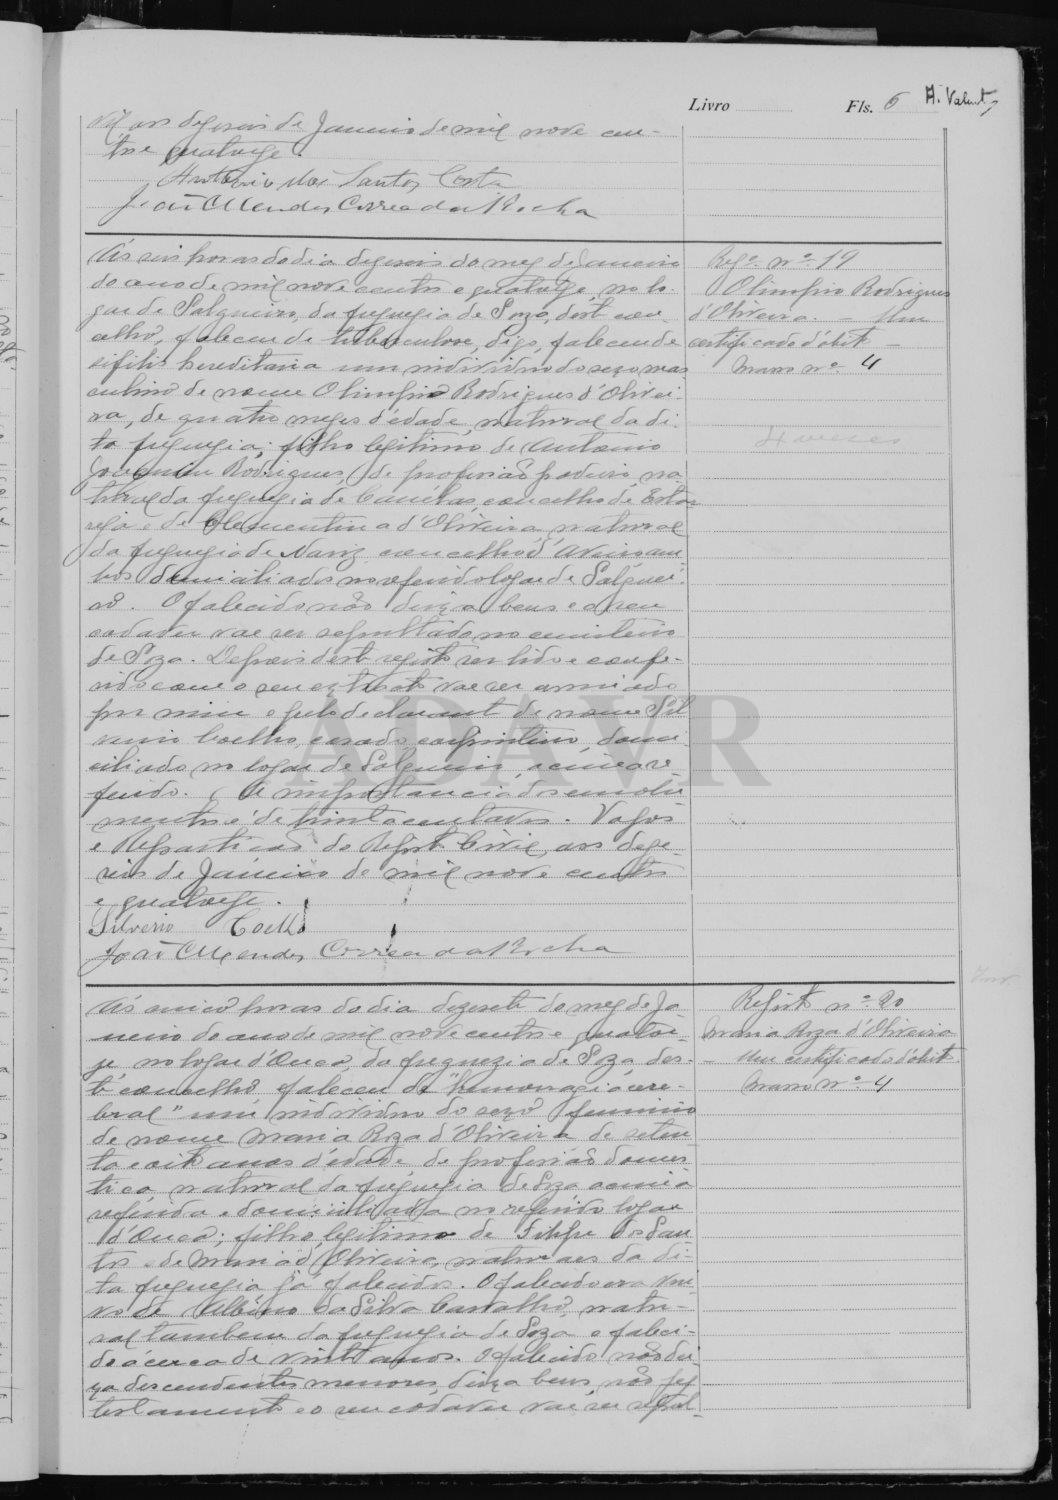 Livro Fls. 6 A. Valente
vil aos dezeseis de Janeiro de mil nove cen-
tos e quatorze.
Antonio dos Santos Costa
João Mendes Correa da Rocha
Ás seis horas do dia dezeseis do mez de Janeiro
do ano de mil nove centos e quatorze, no lo-
gar de Salgueiro, da freguezia de Soza, deste con-
celho, faleceu de tuberculose, digo, faleceu de
sifilis hereditaria um individuo do sexo mas
culino de nome Olimpio Rodrigues d'Olivei-
ra, de quatro mezes d'edade, natural da di-
ta freguezia; filho legitimo de Antonio
Joaquim Rodrigues, de profissão padeiro, na-
tural da freguezia de Canélas, concelho de Estar
reja e de Clementina d'Oliveira, natural
da freguezia de Nariz, concelho d'Aveiro am
bos domiciliados no referido logar de Salguei-
ro. O falecido não deixa bens e o seu
cadaver vae ser sepultado no cemiterio
de Soza. Depois deste registo ser lido e confe-
rido com o seu extrato vae ser assinado
por mim e pelo declarante de nome Sil
verio Coelho, casado carpinteiro, domi
ciliado no logar de Salgueiro, acima re
ferido. A importancia dos emolu
mentos é de trinta centavos. Vagos
e Repartição do Registo Civil, aos deze-
seis de Janeiro de mil nove centos
e quatorze.
Silverio Coelho
João Mendes Correa da Rocha
Regº nº 19
Olimpio Rodrigues
d'Oliveira. — Um
certificado d'óbito —
Masso nº 4
4 mezes
Ás cinco horas do dia dezesete do mez de Ja
neiro do ano de mil nove centos e quator-
ze no logar d'Ouca, da freguezia de Soza, des-
te concelho faleceu de "hemorragia cere-
bral" um individuo do sexo feminino
de nome Maria Roza d'Oliveira de seten-
ta e oito anos d'edade, de profissão domes
tica, natural da freguezia de Soza acima
referida e domiciliada no referido logar
d'Ouca; filha legitima de Filipe dos San
tos e de Maria d'Oliveira, naturaes da di-
ta freguezia já falecidos. O falecido era viu-
vo de Albino da Silva Carvalho, natu-
ral tambem da freguezia de Soza e faleci-
do ácerca de vinte anos. O falecido não dei
xa descendentes menores, deixa bens, não fez
testamento e o seu cadaver vae ser sepul-
Registo nº 20
Maria Roza d'Oliveira
— Um certificado d'óbito
Masso nº 4
ADAVR